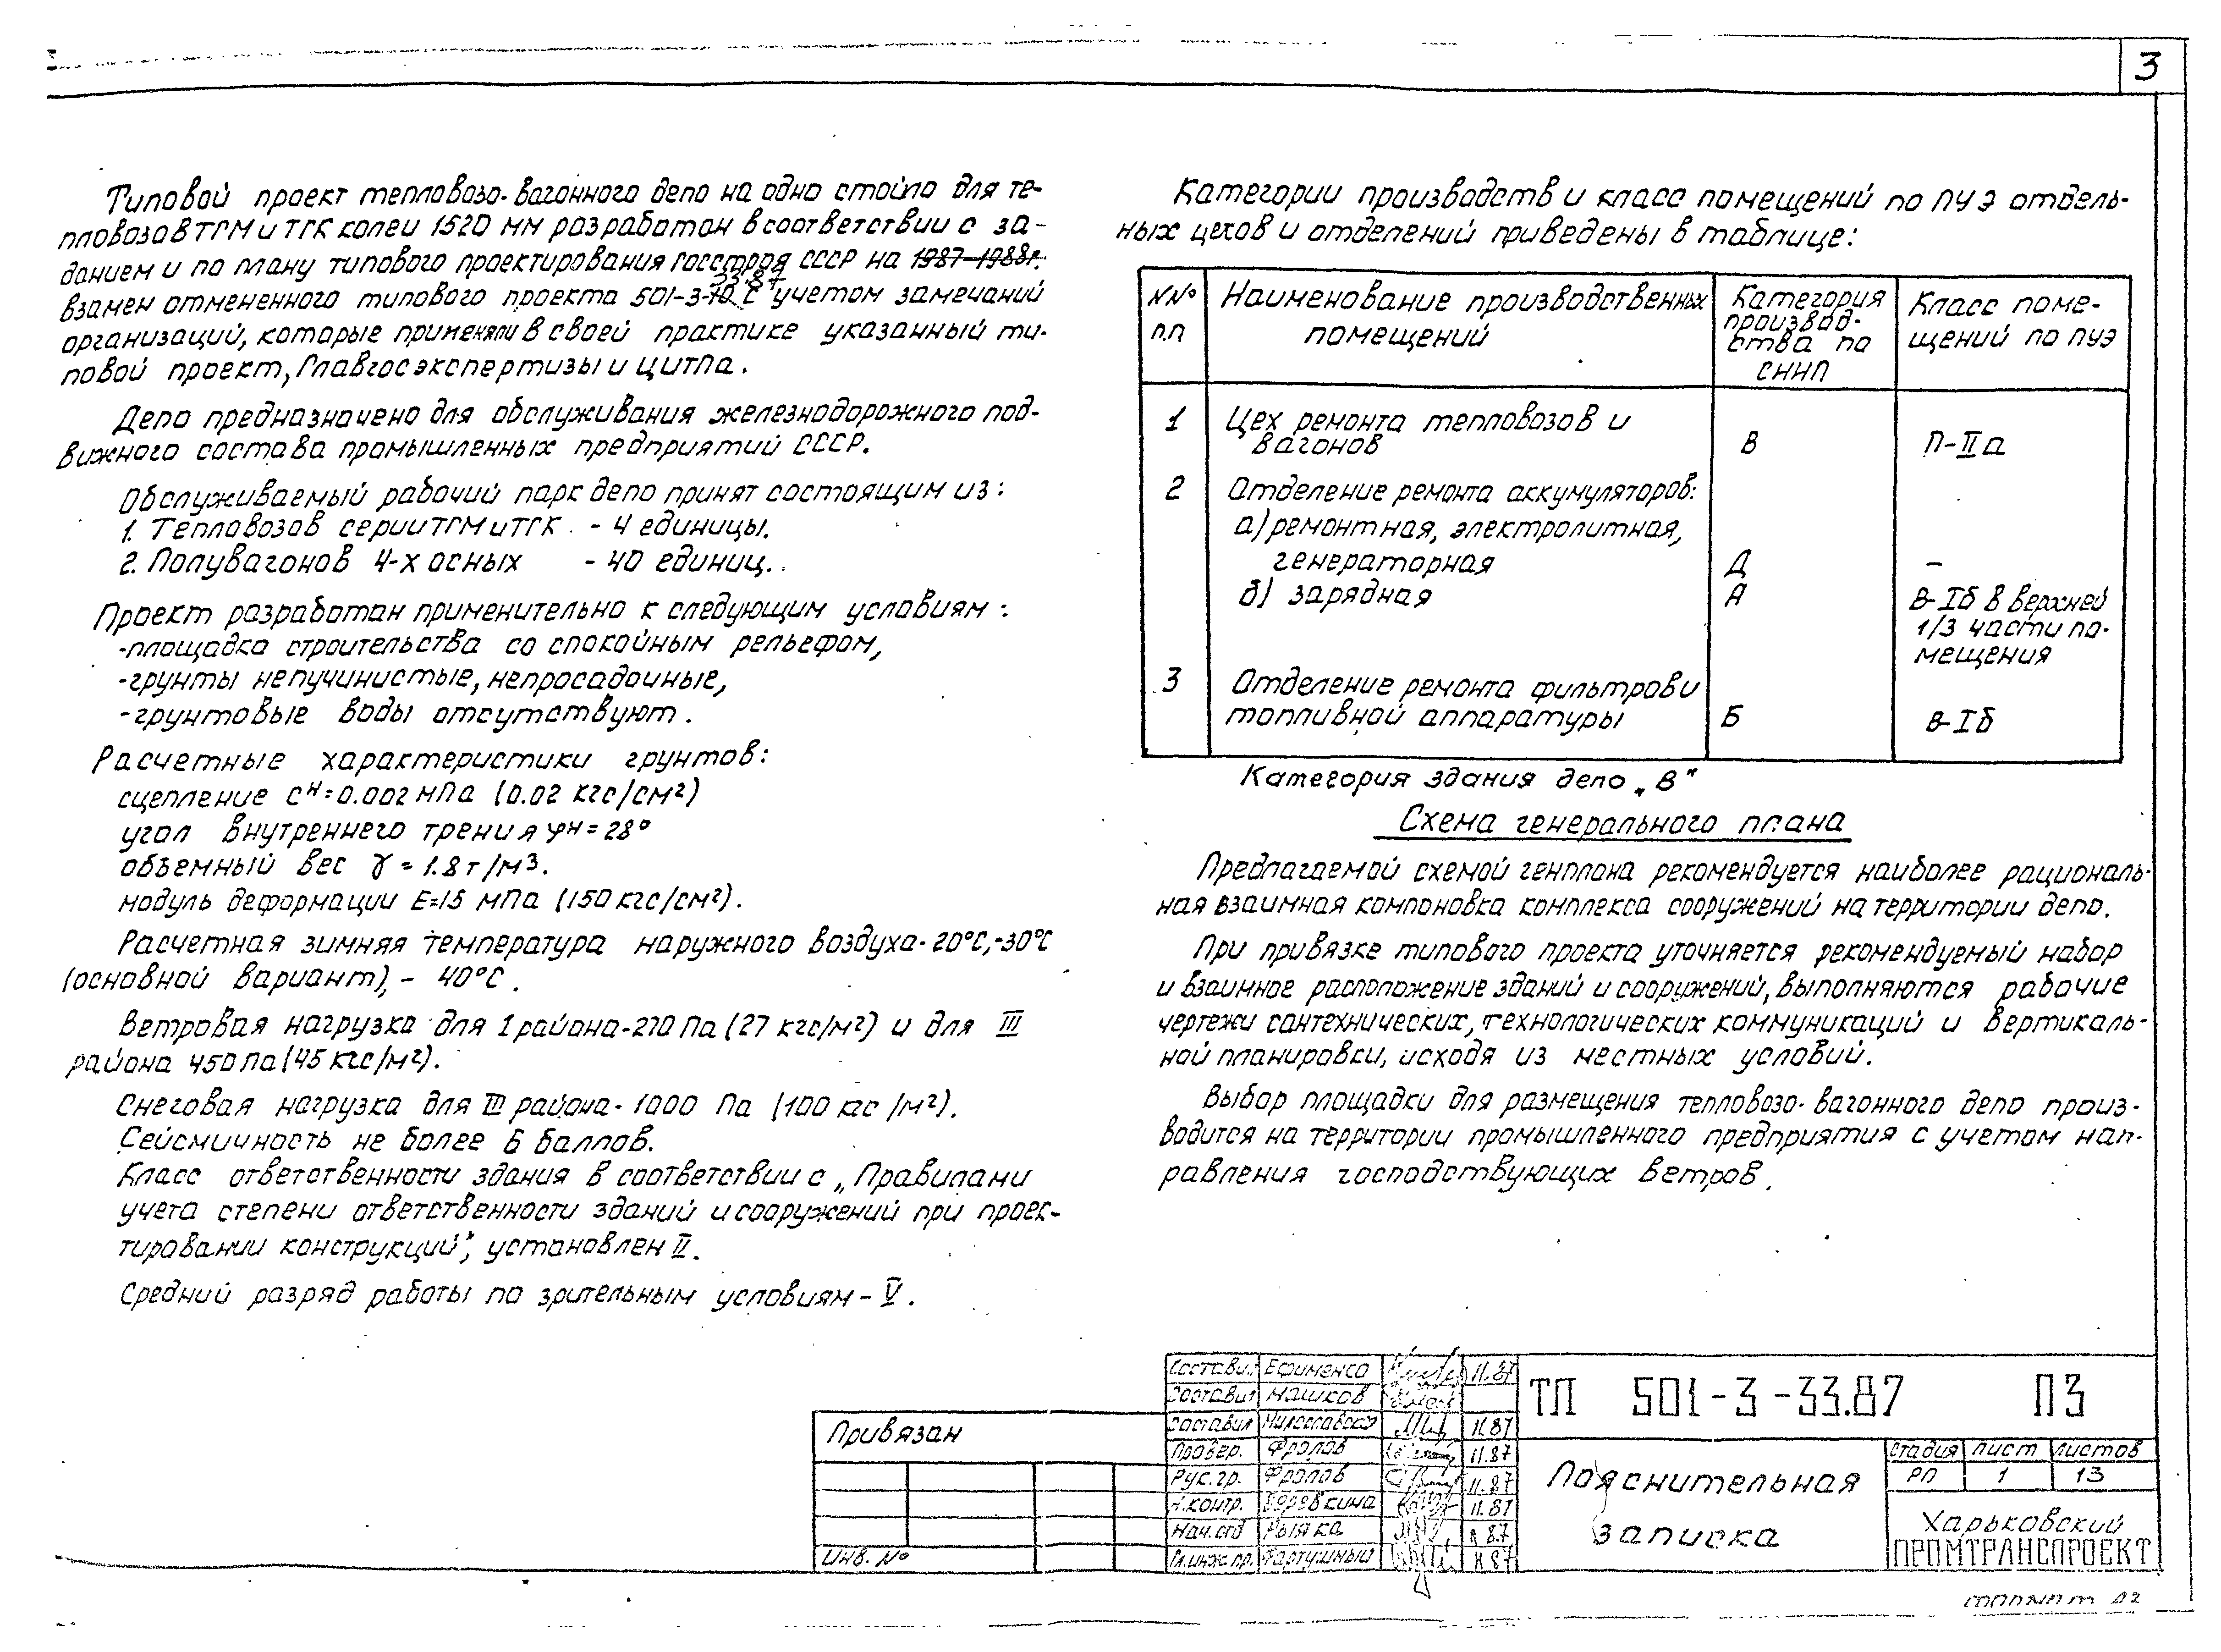 3
Типовой проект тепловозо-вагонного депо на одно стойло для те-
пловозов ТГМ и ТГК колеи 1520 мм разработан в соответствии с за-
данием и по плану типового проектирования Госстроя СССР на 1987-1988г.
33.87
взамен отмененного типового проекта 501-3-10 с учетом замечаний
организаций, которые применяли в своей практике указанный ти-
повой проект, Главгосэкспертизы и ЦИТПа.
Депо предназначено для обслуживания железнодорожного под-
вижного состава промышленных предприятий СССР.
Обслуживаемый рабочий парк депо принят состоящим из:
1. Тепловозов серии ТГМ и ТГК - 4 единицы.
2. Полувагонов 4-х осных - 40 единиц.
Проект разработан применительно к следующим условиям:
-площадка строительства со спокойным рельефом,
-грунты непучинистые, непросадочные,
-грунтовые воды отсутствуют.
Расчетные характеристики грунтов:
сцепление Cн=0.002 мПа (0.02 кгс/см²)
угол внутреннего трения φн=28°
объемный вес γ=1.8т/м3.
модуль деформации E=15 мПа (150 кгс/см²).
Расчетная зимняя температура наружного воздуха-20°С,-30°С
(основной вариант), - 40°С.
Ветровая нагрузка для I района-270 Па (27 кгс/м²) и для III
района 450 Па (45 кгс/м²).
Снеговая нагрузка для III района- 1000 Па (100 кгс/м²).
Сейсмичность не более 6 баллов.
Класс ответственности здания в соответствии с „Правилами
учета степени ответственности зданий и сооружений при проек-
тировании конструкций", установлен II.
Средний разряд работы по зрительным условиям - V.
Категории производств и класс помещений по ПУЭ отдель-
ных цехов и отделений приведены в таблице:
NNº п.п Наименование производственных помещений Категория производ-ства по СНИП Класс поме-щений по ПУЭ
1 Цех ремонта тепловозов и
вагонов В П-IIа
2 Отделение ремонта аккумуляторов:
а) ремонтная, электролитная,
генераторная Д -
б) зарядная А В-Iб в верхней
1/3 части по-
мещения
3 Отделение ремонта фильтров и
топливной аппаратуры Б В-Iб
Категория здания депо „В"
Схема генерального плана
Предлагаемой схемой генплана рекомендуется наиболее рациональ-
ная взаимная компоновка комплекса сооружений на территории депо.
При привязке типового проекта уточняется рекомендуемый набор
и взаимное расположение зданий и сооружений, выполняются рабочие
чертежи сантехнических, технологических коммуникаций и вертикаль-
ной планировки, исходя из местных условий.
Выбор площадки для размещения тепловозо-вагонного депо произ-
водится на территории промышленного предприятия с учетом нап-
равления господствующих ветров.
Привязан
Инв. Nº
Составил Ефименко 11.87
Составил Машков
Составил 11.87
Провер. Фролов 11.87
Рук.гр. Фролов 11.87
Н.контр. Веревкина 11.87
Нач.отд Рыяка 11 87
Гл.инж.пр. Фартушный 11 87
ТП 501-3-33.87 ПЗ
Пояснительная
записка
Стадия Лист Листов
РП 1 13
Харьковский
ПРОМТРАНСПРОЕКТ
Формат А2